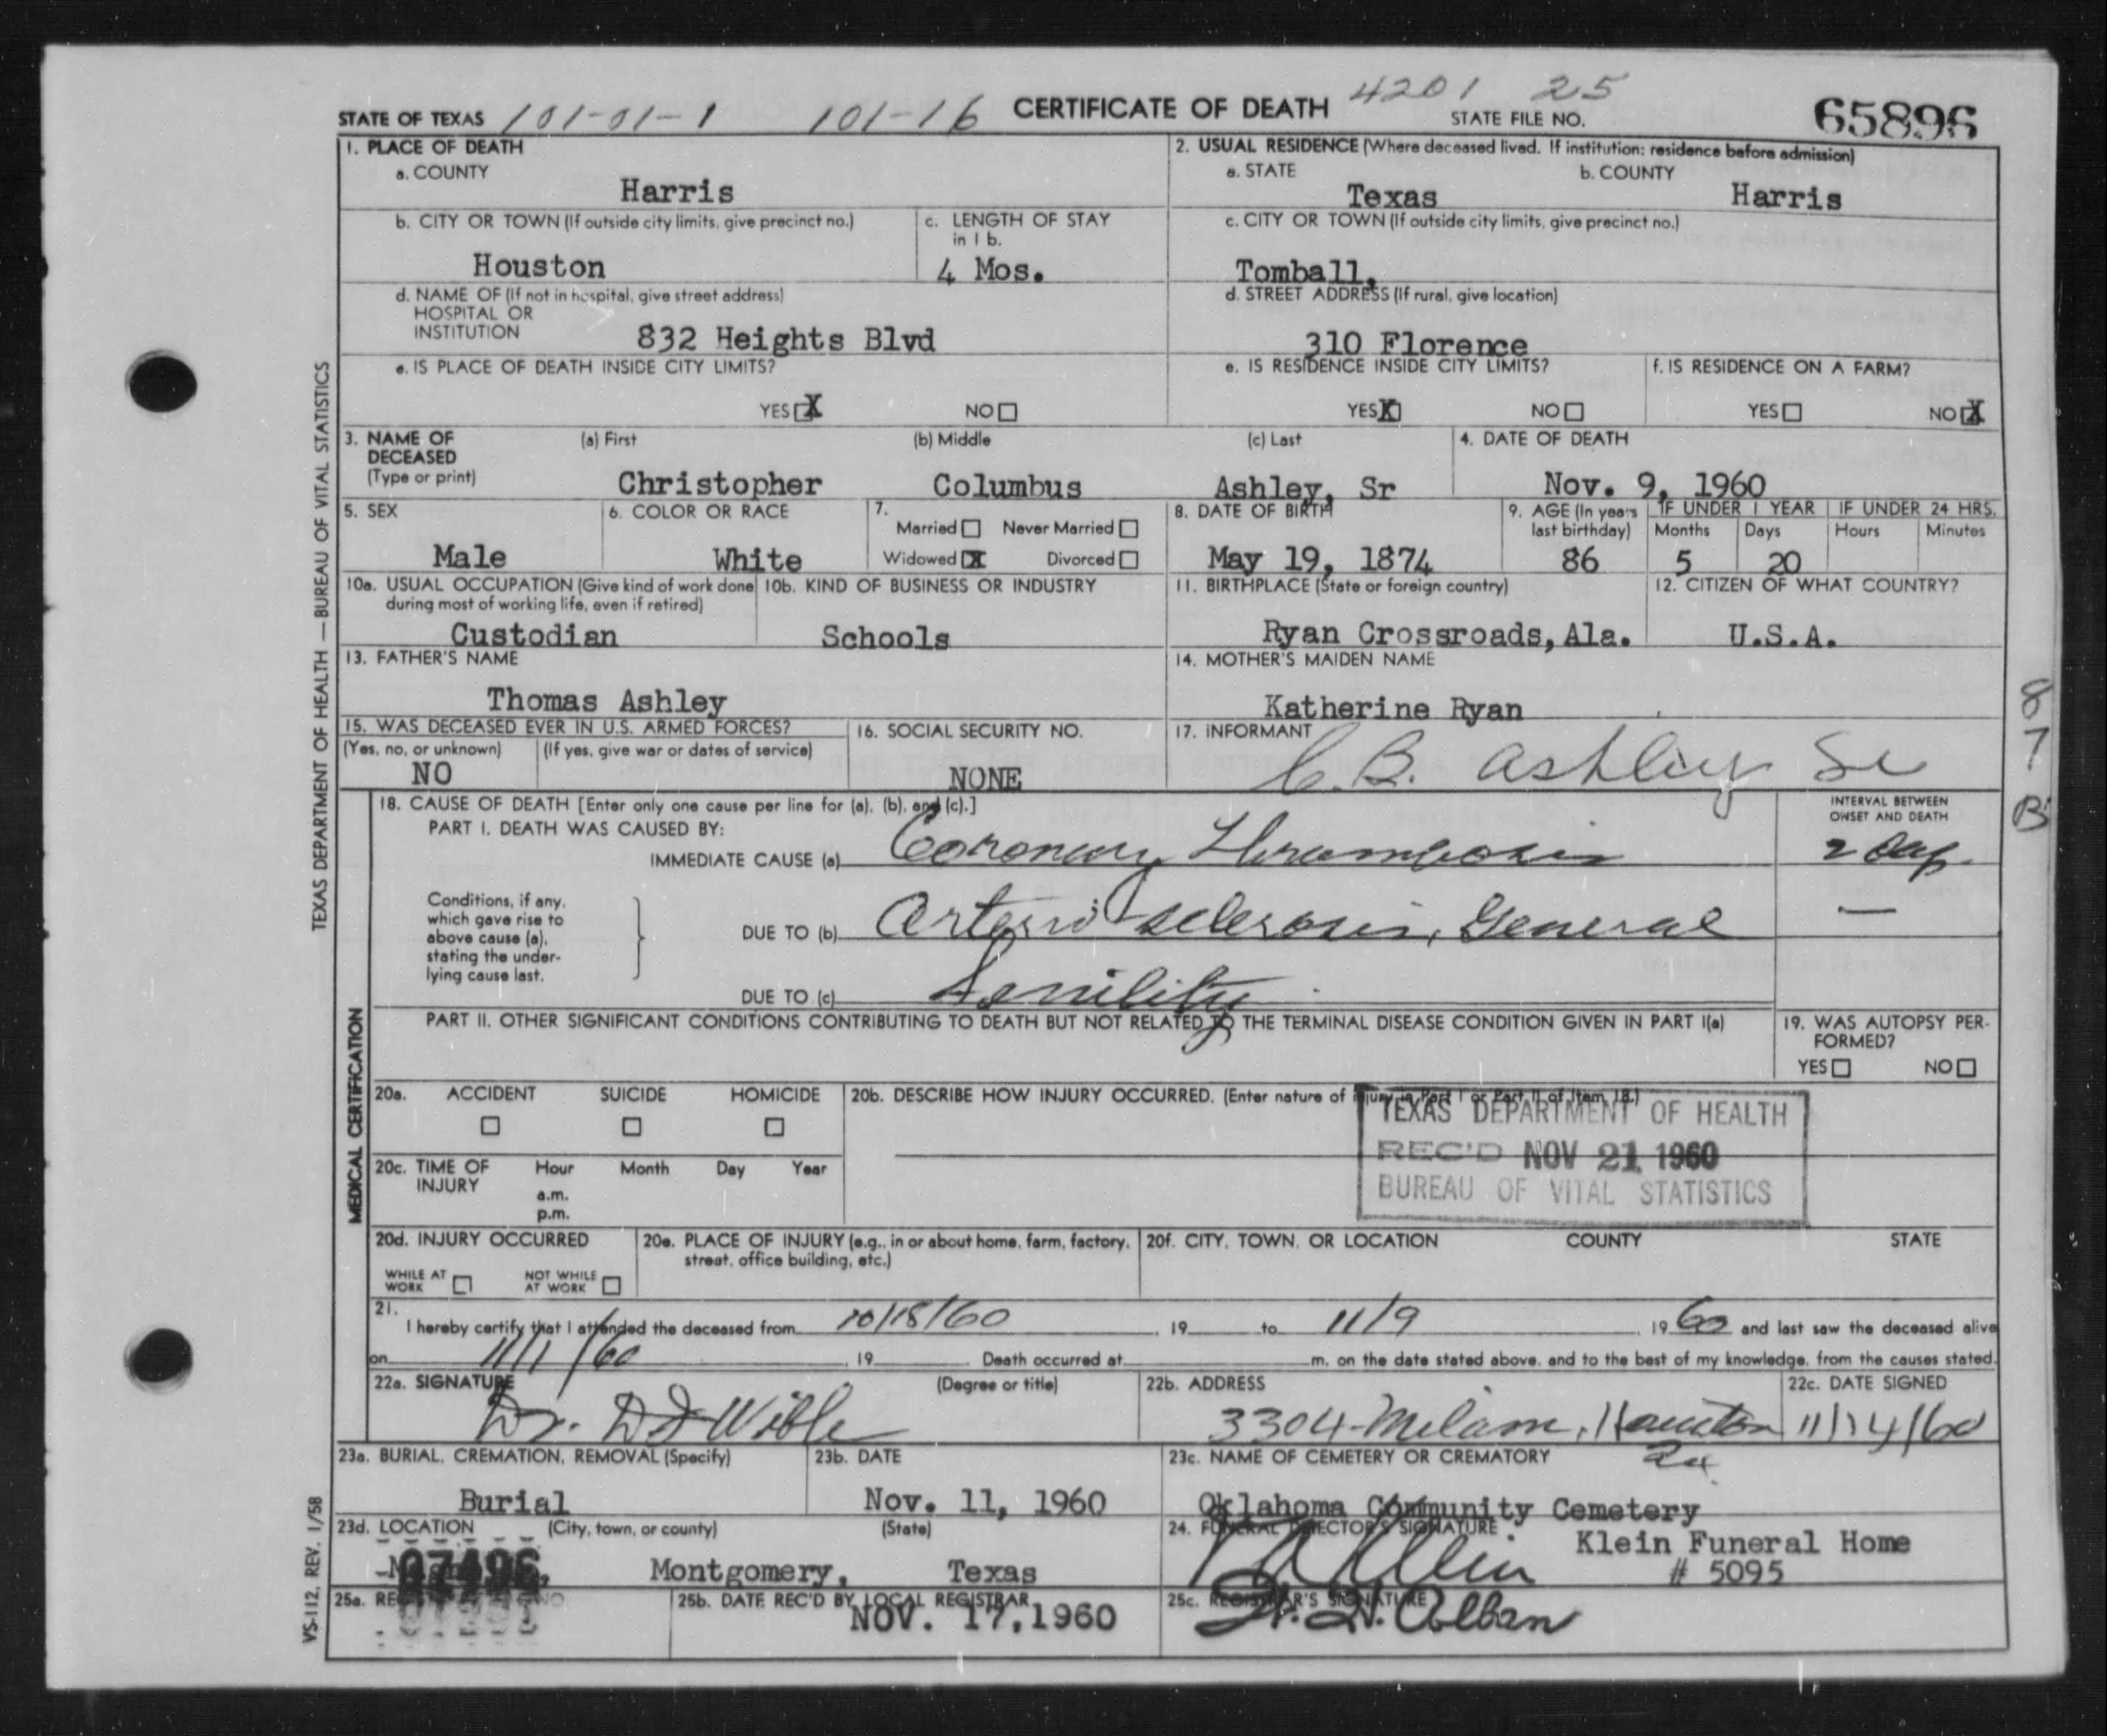 STATE OF TEXAS 101-01-1 101-16 CERTIFICATE OF DEATH 4201 25 STATE FILE NO. 65896
1. PLACE OF DEATH
a. COUNTY
Harris
2. USUAL RESIDENCE (Where deceased lived. If institution: residence before admission)
a. STATE b. COUNTY
Texas Harris
b. CITY OR TOWN (If outside city limits, give precinct no.)
Houston
c. LENGTH OF STAY in 1 b.
4 Mos.
c. CITY OR TOWN (If outside city limits, give precinct no.)
Tomball,
d. NAME OF (If not in hospital, give street address)
HOSPITAL OR
INSTITUTION 832 Heights Blvd
d. STREET ADDRESS (If rural, give location)
310 Florence
e. IS PLACE OF DEATH INSIDE CITY LIMITS?
YES X NO
e. IS RESIDENCE INSIDE CITY LIMITS?
YES X NO
f. IS RESIDENCE ON A FARM?
YES NO X
3. NAME OF DECEASED (Type or print)
(a) First (b) Middle (c) Last
Christopher Columbus Ashley, Sr
4. DATE OF DEATH
Nov. 9, 1960
5. SEX
Male
6. COLOR OR RACE
White
7.
Married Never Married
Widowed X Divorced
8. DATE OF BIRTH
May 19, 1874
9. AGE (In years last birthday)
86
IF UNDER 1 YEAR IF UNDER 24 HRS.
Months Days Hours Minutes
5 20
10a. USUAL OCCUPATION (Give kind of work done
during most of working life, even if retired)
Custodian
10b. KIND OF BUSINESS OR INDUSTRY
Schools
11. BIRTHPLACE (State or foreign country)
Ryan Crossroads, Ala.
12. CITIZEN OF WHAT COUNTRY?
U.S.A.
13. FATHER'S NAME
Thomas Ashley
14. MOTHER'S MAIDEN NAME
Katherine Ryan
15. WAS DECEASED EVER IN U.S. ARMED FORCES?
(Yes, no, or unknown) (If yes, give war or dates of service)
NO
16. SOCIAL SECURITY NO.
NONE
17. INFORMANT
C.B. Ashley Sr
18. CAUSE OF DEATH [Enter only one cause per line for (a), (b), and (c).]
PART I. DEATH WAS CAUSED BY:
IMMEDIATE CAUSE (a) Coronary Thrombosis
INTERVAL BETWEEN
ONSET AND DEATH
2 days
Conditions, if any,
which gave rise to
above cause (a),
stating the under-
lying cause last.
DUE TO (b) Arterio sclerosis, General
—
DUE TO (c) Senility
PART II. OTHER SIGNIFICANT CONDITIONS CONTRIBUTING TO DEATH BUT NOT RELATED TO THE TERMINAL DISEASE CONDITION GIVEN IN PART I(a)
19. WAS AUTOPSY PER-
FORMED?
YES NO
20a. ACCIDENT SUICIDE HOMICIDE
20b. DESCRIBE HOW INJURY OCCURRED. (Enter nature of injury in Part I or Part II of Item 18.)
TEXAS DEPARTMENT OF HEALTH
REC'D NOV 21 1960
BUREAU OF VITAL STATISTICS
20c. TIME OF INJURY
Hour Month Day Year
a.m.
p.m.
20d. INJURY OCCURRED
WHILE AT WORK NOT WHILE AT WORK
20e. PLACE OF INJURY (e.g., in or about home, farm, factory,
street, office building, etc.)
20f. CITY, TOWN, OR LOCATION COUNTY STATE
21.
I hereby certify that I attended the deceased from 10/18/60, 19 to 11/9, 19 60 and last saw the deceased alive
on 11/1/60, 19 . Death occurred at m. on the date stated above, and to the best of my knowledge, from the causes stated.
22a. SIGNATURE (Degree or title)
22b. ADDRESS
3304 Milam, Houston
22c. DATE SIGNED
11/14/60
23a. BURIAL, CREMATION, REMOVAL (Specify)
Burial
23b. DATE
Nov. 11, 1960
23c. NAME OF CEMETERY OR CREMATORY
Oklahoma Community Cemetery
23d. LOCATION (City, town, or county) (State)
Montgomery, Texas
07496
24. FUNERAL DIRECTOR'S SIGNATURE
Klein Klein Funeral Home
# 5095
25a. REG NO
25b. DATE REC'D BY LOCAL REGISTRAR
NOV. 17, 1960
25c. REGISTRAR'S SIGNATURE
TEXAS DEPARTMENT OF HEALTH — BUREAU OF VITAL STATISTICS
MEDICAL CERTIFICATION
VS-112, REV. 1/58
8
7
B